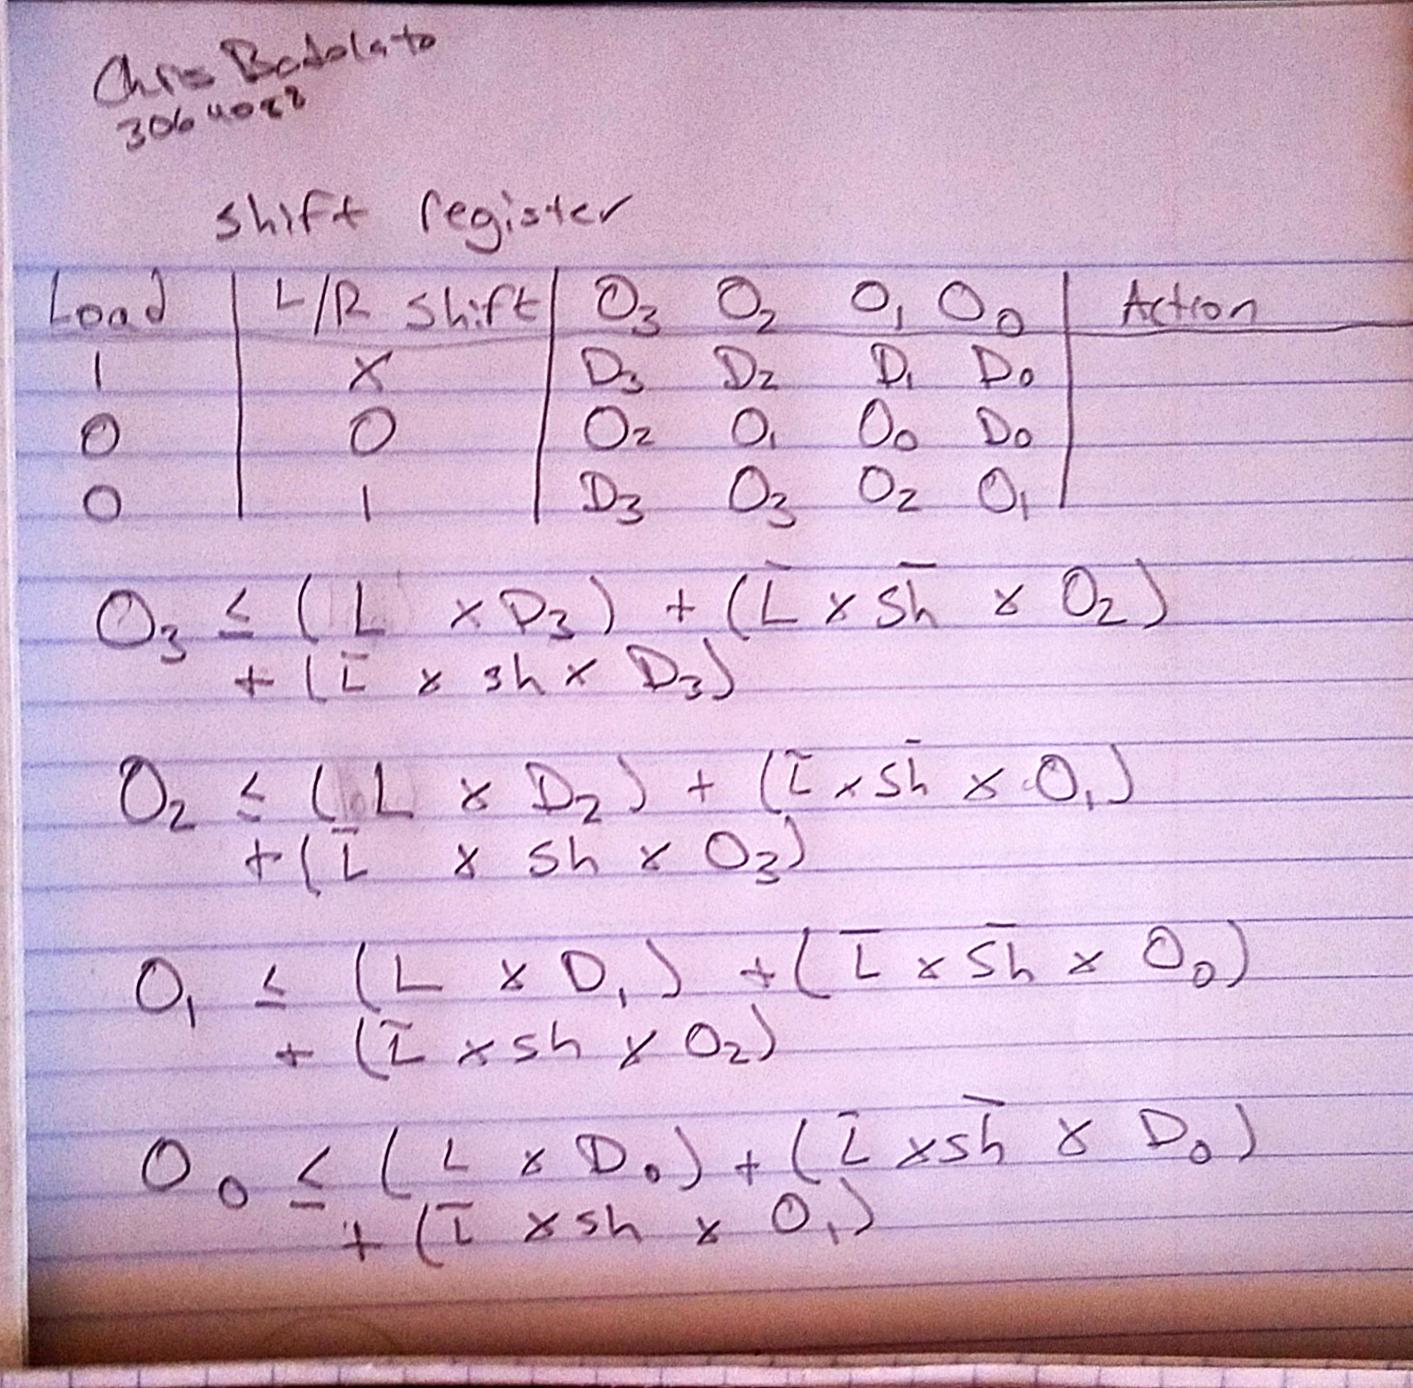 Chris Badolato
3064088
shift register
Load L/R Shift O₃ O₂ O₁ O₀ Action
1 X D₃ D₂ D₁ D₀
0 0 O₂ O₁ O₀ D₀
0 1 D₃ O₃ O₂ O₁
O₃ ≤ (L x D₃) + (L̄ x s̄h̄ x O₂)
+ (L̄ x sh x D₃)
O₂ ≤ (L x D₂) + (L̄ x s̄h̄ x O₁)
+ (L̄ x sh x O₃)
O₁ ≤ (L x D₁) + (L̄ x s̄h̄ x O₀)
+ (L̄ x sh x O₂)
O₀ ≤ (L x D₀) + (L̄ x s̄h̄ x D₀)
+ (L̄ x sh x O₁)